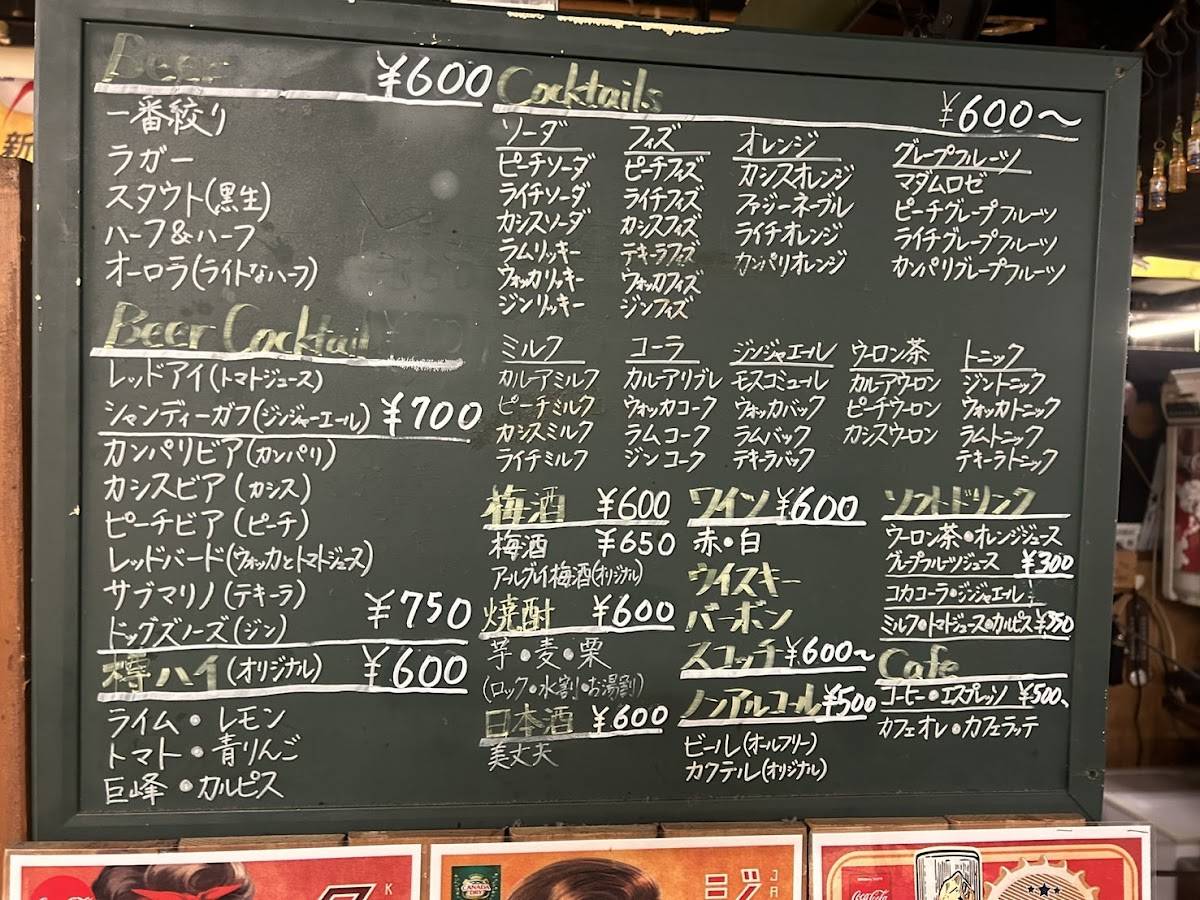 Beer ¥600
一番絞り
ラガー
スタウト(黒生)
ハーフ&ハーフ
オーロラ(ライトなハーフ)
Beer Cocktail
レッドアイ(トマトジュース)
シャンディーガフ(ジンジャーエール) ¥700
カンパリビア(カンパリ)
カシスビア(カシス)
ピーチビア(ピーチ)
レッドバード(ウォッカとトマトジュース)
サブマリノ(テキーラ)
ドッグズノーズ(ジン) ¥750
樽ハイ(オリジナル) ¥600
ライム・レモン
トマト・青りんご
巨峰・カルピス
Cocktails ¥600〜
ソーダ
ピーチソーダ
ライチソーダ
カシスソーダ
ラムリッキー
ウォッカリッキー
ジンリッキー
フィズ
ピーチフィズ
ライチフィズ
カシスフィズ
テキーラフィズ
ウォッカフィズ
ジンフィズ
オレンジ
カシスオレンジ
ファジーネーブル
ライチオレンジ
カンパリオレンジ
グレープフルーツ
マダムロゼ
ピーチグレープフルーツ
ライチグレープフルーツ
カンパリグレープフルーツ
ミルク
カルーアミルク
ピーチミルク
カシスミルク
ライチミルク
コーラ
カルーアリブレ
ウォッカコーク
ラムコーク
ジンコーク
ジンジャエール
モスコミュール
ウォッカバック
ラムバック
テキーラバック
ウーロン茶
カルーアウーロン
ピーチウーロン
カシスウーロン
トニック
ジントニック
ウォッカトニック
ラムトニック
テキーラトニック
梅酒 ¥600
梅酒 ¥650
アールグレイ梅酒(オリジナル)
焼酎 ¥600
芋・麦・栗
(ロック・水割・お湯割)
日本酒 ¥600
美丈夫
ワイン ¥600
赤・白
ウイスキー
バーボン
スコッチ ¥600〜
ノンアルコール ¥500
ビール(オールフリー)
カクテル(オリジナル)
ソフトドリンク
ウーロン茶・オレンジジュース
グレープフルーツジュース ¥300
コカコーラ・ジンジャエール
ミルク・トマトジュース・カルピス ¥350
Cafe
コーヒー・エスプレッソ ¥500〜
カフェオレ・カフェラッテ
新
K
CANADA DRY
Coca-Cola